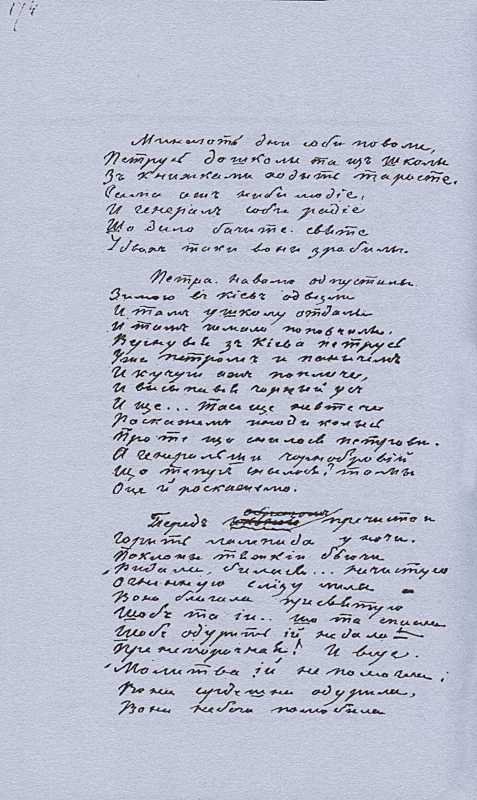 174
Минають дни соби поволи,
Петрусь дошколы та изъ школы
Зъ книжками ходыть та росте.
Сама ажъ ниби молодіе,
И генералъ соби радіе
Що дило бачите святе
Удвохъ таки вони зробылы.
Петра на волю одпустылы
Зимою въ Кіевъ одвезли
И тамъ у школу отдалы
И тамъ чимало повчилы.
Вернувся зъ Кіева Петрусь
Уже Петромъ и паничемъ
И кучери ажъ по плечи,
И высыпався чорный усъ
И ще... та се ще не втече
Роскажемъ иноди колысь
Про те що снилося Петрови.
А генеральши чорнобривій
Що теперъ снилось?
Оце й роскажемо.
Передъ образомъ пречистои
Горить лампада у ночи.
Поклоны тяжкіи бьючи
Ридала, билась... нечистую
Огненную слёзу лила
Вона благала пресвятую
Щобъ та іи.. що та спасла
Щобъ одурить ій не дала
Пренепорочная! И вкує.
Молитва ій не помогла;
Вона сердешна одурила,
Вона небога полюбила